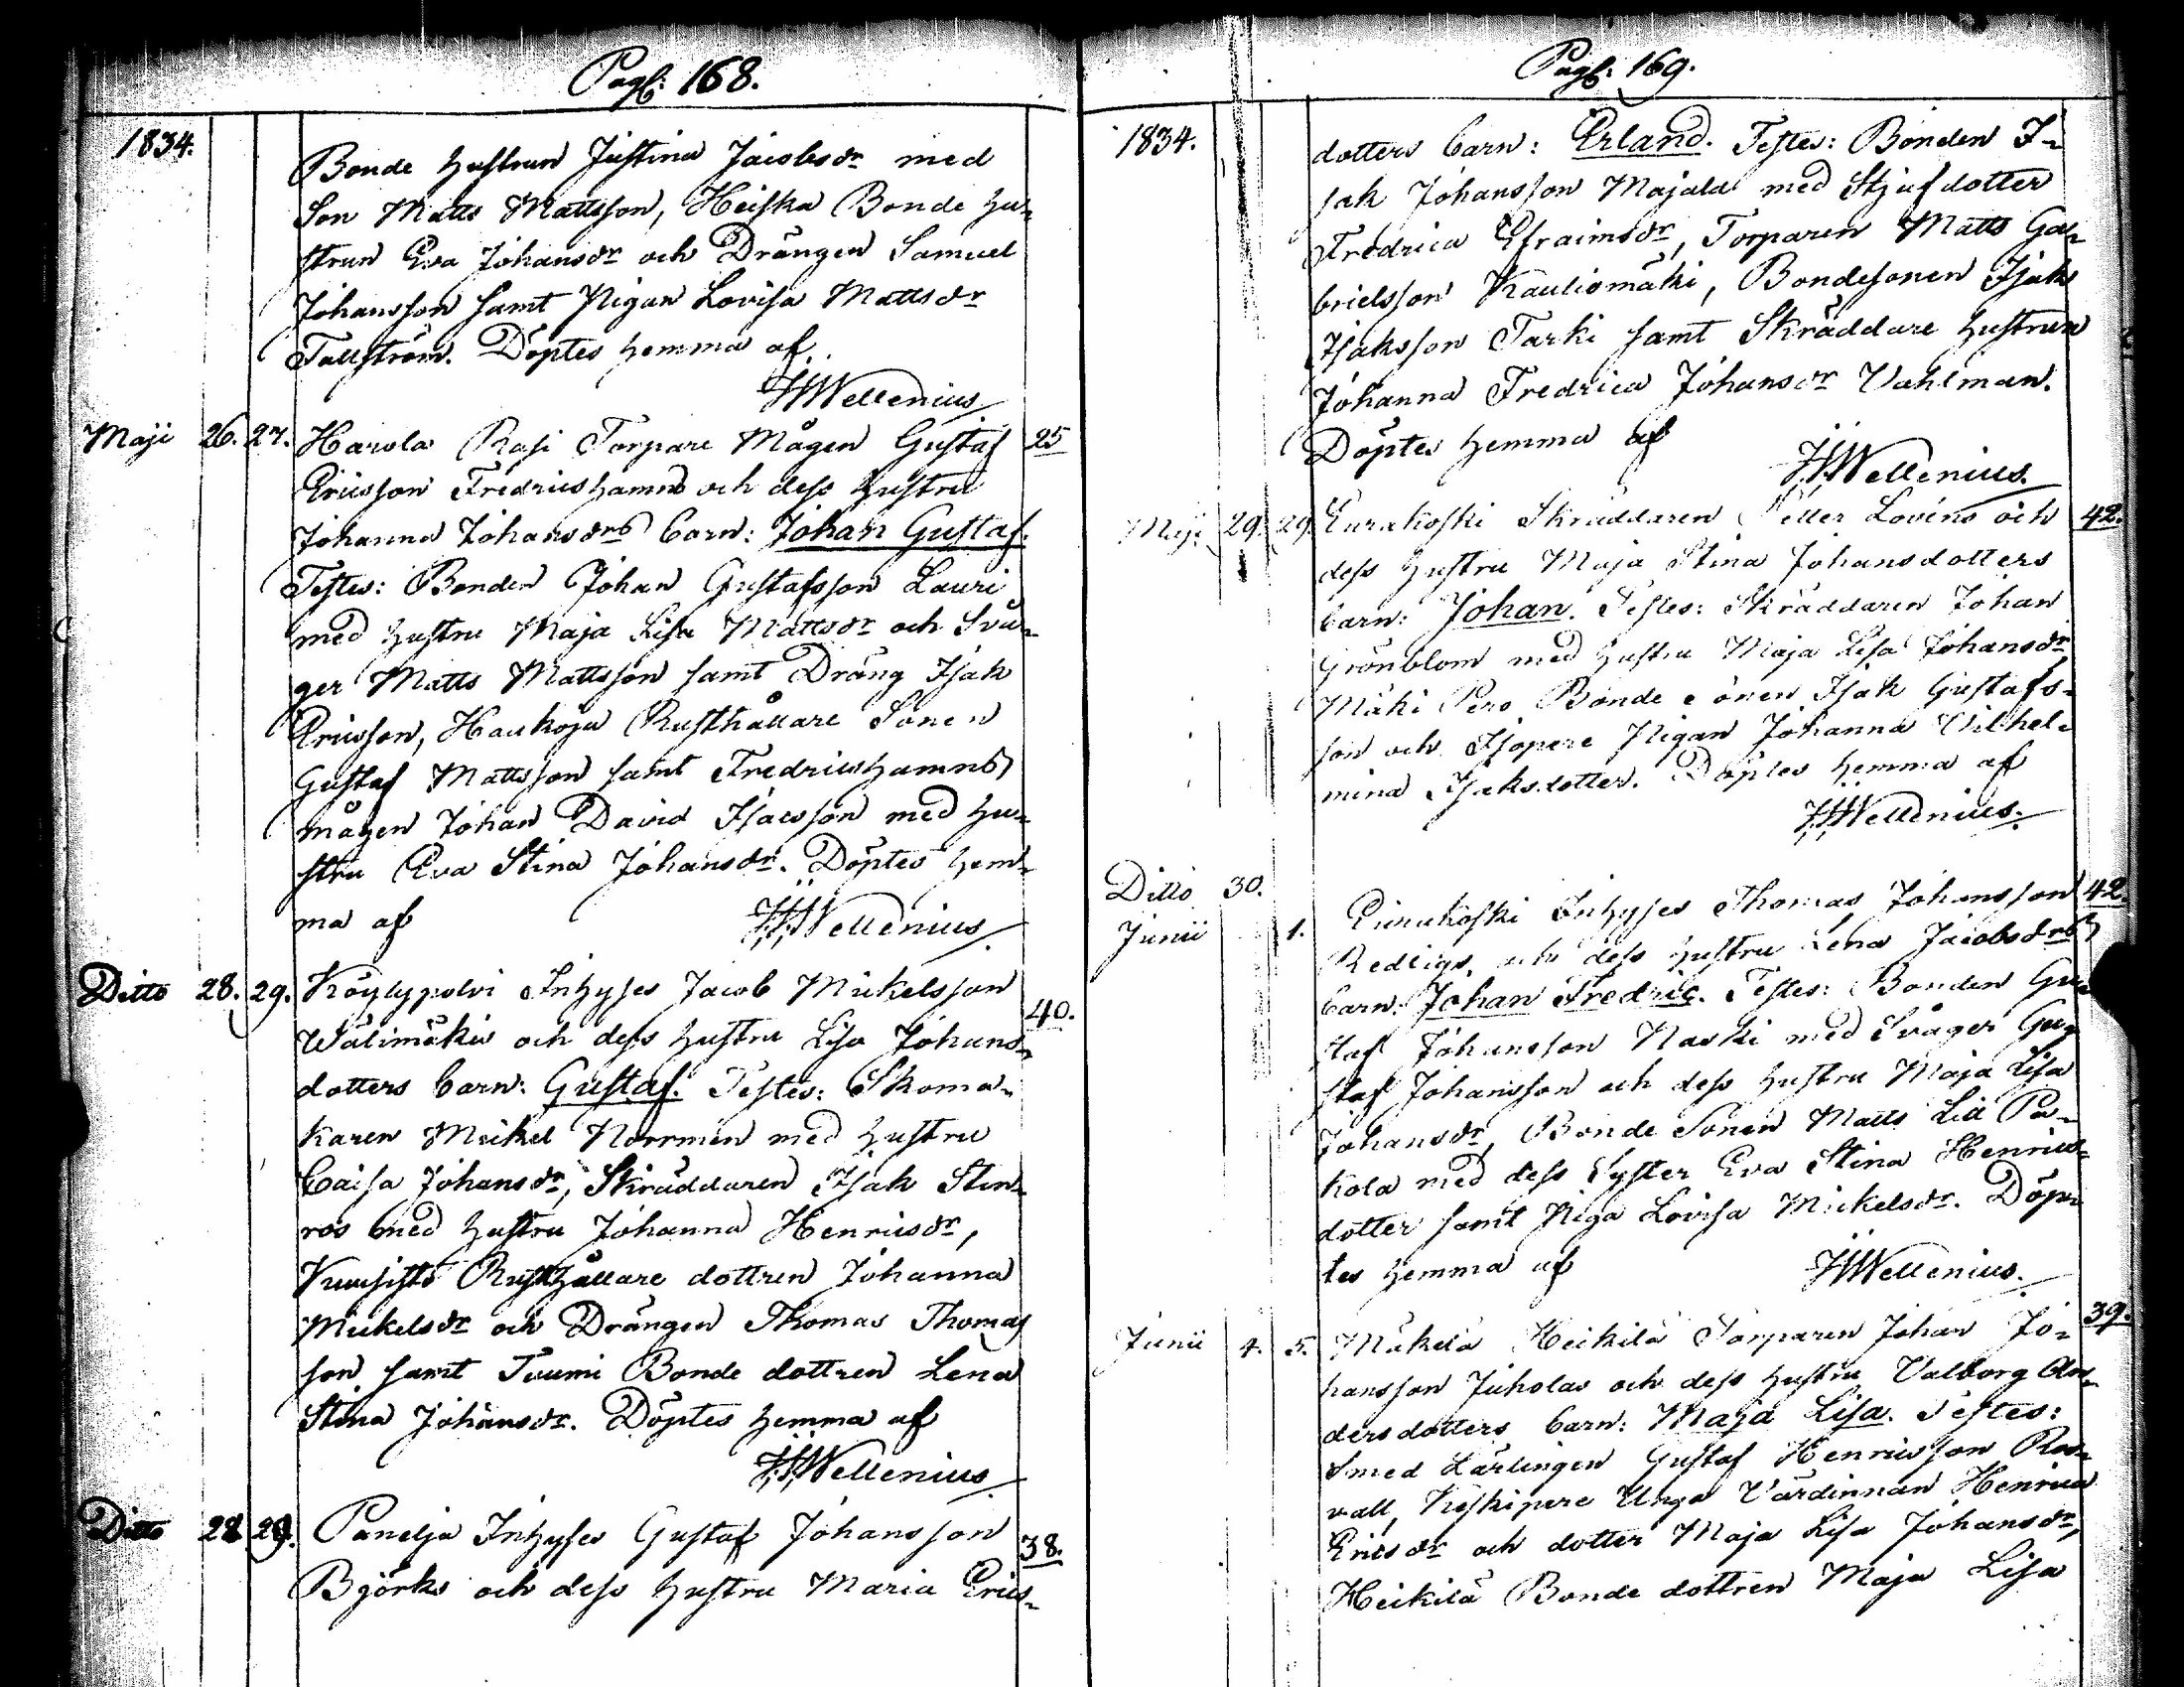 Pag: 168.
1834.
Bonde hustrun Justina Jacobsdr med
Son Matts Mattsson, Heiska Bonde hu-
strun Eva Johansdr och Drängen Samuel
Johansson samt Pigan Lovisa Mattsdr
Tallström. Döptes hemma af
Wellenius
Maji 26. 27. Harola Rasi Torpare Mågen Gustaf 25
Ericsson Fredricshamn och dess hustru
Johanna Johansdrs barn: Johan Gustaf.
Testes: Bonden Johan Gustafsson Lauri
med hustru Maja Lisa Mattsdr och Svå-
ger Matts Mattsson samt Dräng Isak
Ericsson, Haukoja Rusthållare Sonen
Gustaf Mattsson samt Fredricshamns
mågen Johan David Isacsson med hu-
stru Eva Stina Johansdr. Döptes hem-
ma af Wellenius
Ditto 28. 29. Köylypolvi Inhyses Jacob Mickelsson 40.
Wälimäkis och dess hustru Lisa Johans-
dotters barn: Gustaf. Testes: Skoma-
karen Mickel Norrmén med hustru
Caisa Johansdr, Skräddaren Isak Sten-
ros med hustru Johanna Henricsdr,
Kuusisto Rusthållare dottren Johanna
Mickelsdr och Drängen Thomas Thomas
son samt Tuomi Bonde dottren Lena
Stina Johansdr. Döptes hemma af
Wellenius
Ditto 28 29. Panelja Inhyses Gustaf Johansson 38.
Björks och dess hustru Maria Erics-
Pag: 169.
1834.
dotters barn: Erland. Testes: Bonden I-
sak Johansson Majala med Stjufdotter
Fredrica Efraimsdr, Torparen Matts Ga-
brielsson Kauliomäki, Bondesonen Isak
Isaksson Tarki samt Skräddare hustrun
Johanna Fredrica Johansdr Vahlman.
Döptes hemma af
Wellenius.
Maji 29. 29. Eurakoski Skräddaren Petter Lovéns och 42.
dess hustru Maja Stina Johansdotters
barn: Johan. Testes: Skräddaren Johan
Grönblom med hustru Maja Lisa Johansdr
Mäki Pero Bonde sonen Isak Gustafs-
son och Isopere Pigan Johanna Vilhel-
mina Isaksdotter. Döptes hemma af
Wellenius.
Ditto 30.
Junii 1. Eurakoski Inhyses Thomas Johansson 42.
Redligs, och dess hustru Lena Jacobsdrs
barn: Johan Fredric. Testes: Bonden Gu-
staf Johansson Naski med Svåger Gu-
staf Johansson och dess hustru Maja Lisa
Johansdr, Bonde Sonen Matts Lill Pa-
kola med dess Syster Eva Stina Henrics-
dotter samt Piga Lovisa Mickelsdr. Döp-
tes hemma af Wellenius.
Junii 4. 5. Mäkelä Heikilä Torparen Johan Jo- 39.
hansson Juholas och dess hustru Valborg An-
dersdotters barn: Maja Lisa. Testes:
Smed Lärlingen Gustaf Henricsson Ros-
vall, Keskipere Unga Värdinnan Henrica
Ericsdr och dotter Maja Lisa Johansdr,
Heikilä Bonde dottren Maja Lisa